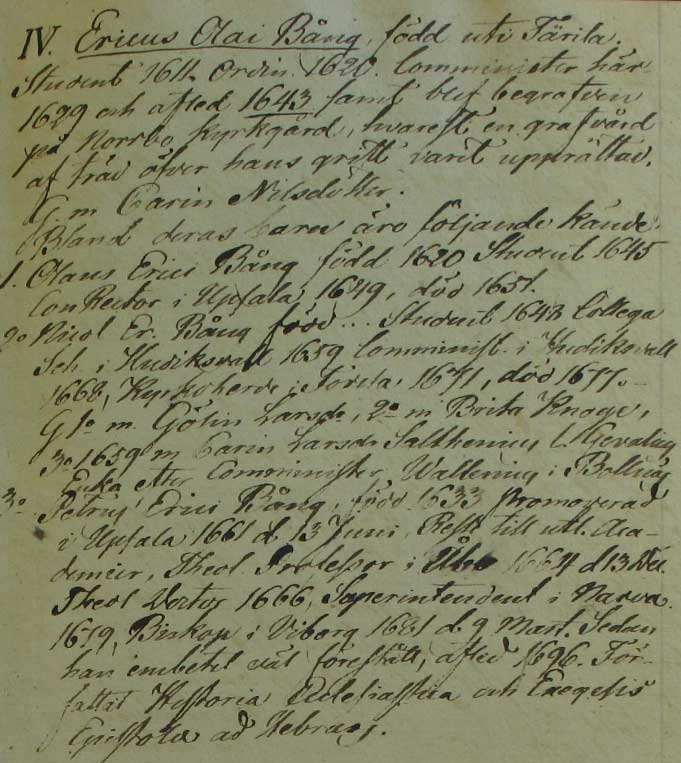 IV. Ericus Olai Bång, född uti Färila.
Student 1611. Ordin. 1620. Comminister här
1629 och afled 1643 samt blef begrafven
på Norrbo Kyrkgård, hwarest en grafvård
af träd öfver hans grift varit upprättad.
G. m Carin Nilsdotter.
Bland deras barn äro följande kände.
1. Olaus Erici Bång född 1620 Student 1645
ConRector i Upsala, 1649, död 1651.
2o Nicol Er. Bång född... Student 1643 Collega
Sch. i Hudiksvall 1659 Comminist. i Hudiksvall
1668, Kyrkoherde i 1671, död 1677.
G 1o m. Gölin Larsdr, 2o m Brita Knoge,
3o 1659 m Carin Larsdr Salthenius l. Gevalius
Enka efter Comminister Wallenius i Bollnäs
3o Petrus Erici Bång, född 1633 promoverad
i Upsala 1661 d. 13 Juni, Rest till utl. Aca-
demier, Theol. Professor i Åbo 1664 d 13 Dec.
Theol Doctor 1666, Superintendent i Narva
1679, Biskop i Viborg 1681 d. 9 Mart. Sedan
han embetet väl förestått, afled 1696. För-
fattat Historia Eclesiastica och Exegesis
Epistola ad Hebræos.